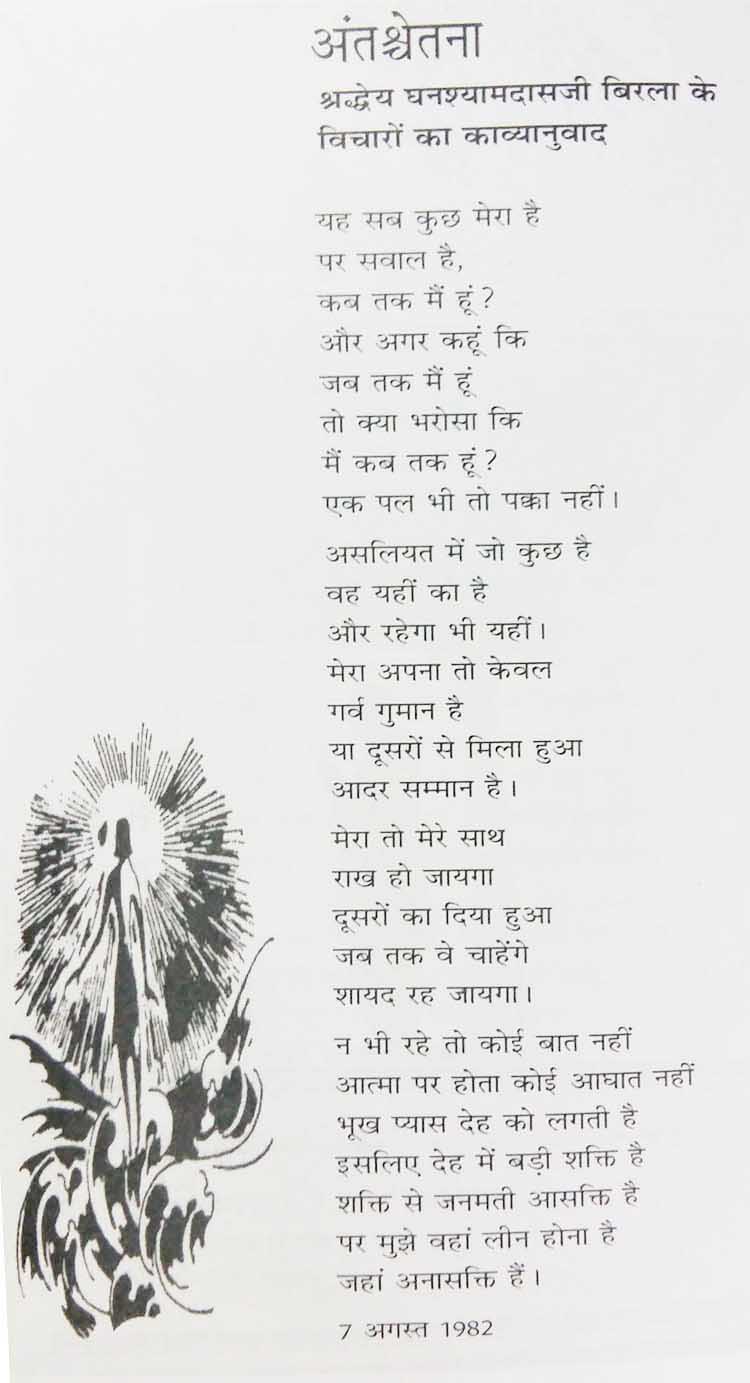 अंतश्चेतना
श्रद्धेय घनश्यामदासजी बिरला के
विचारों का काव्यानुवाद
यह सब कुछ मेरा है
पर सवाल है,
कब तक मैं हूं?
और अगर कहूं कि
जब तक मैं हूं
तो क्या भरोसा कि
मैं कब तक हूं?
एक पल भी तो पक्का नहीं।
असलियत में जो कुछ है
वह यहीं का है
और रहेगा भी यहीं।
मेरा अपना तो केवल
गर्व गुमान है
या दूसरों से मिला हुआ
आदर सम्मान है।
मेरा तो मेरे साथ
राख हो जायगा
दूसरों का दिया हुआ
जब तक वे चाहेंगे
शायद रह जायगा।
न भी रहे तो कोई बात नहीं
आत्मा पर होता कोई आघात नहीं
भूख प्यास देह को लगती है
इसलिए देह में बड़ी शक्ति है
शक्ति से जनमती आसक्ति है
पर मुझे वहां लीन होना है
जहां अनासक्ति हैं।
7 अगस्त 1982